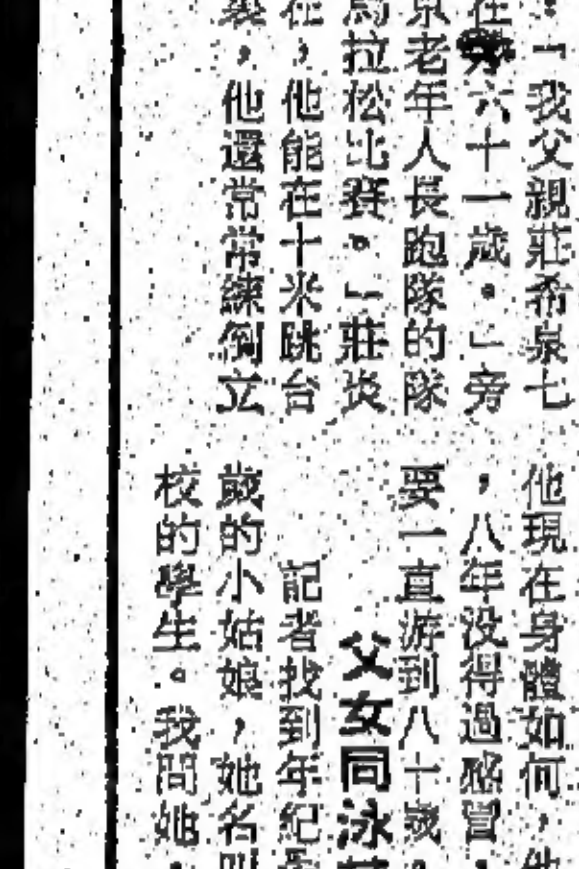 ：「我父親莊希泉七
在　六十一歲。」旁
京老年人長跑隊的隊
馬拉松比賽。」莊炎
在，他能在十米跳台
裏，他還常常練倒立
他現在身體如何，他
，八年没得過感冒，
要一直游到八十歲，
父女同泳
記者找到年紀
歲的小姑娘，她名叫
校的學生。我問她，